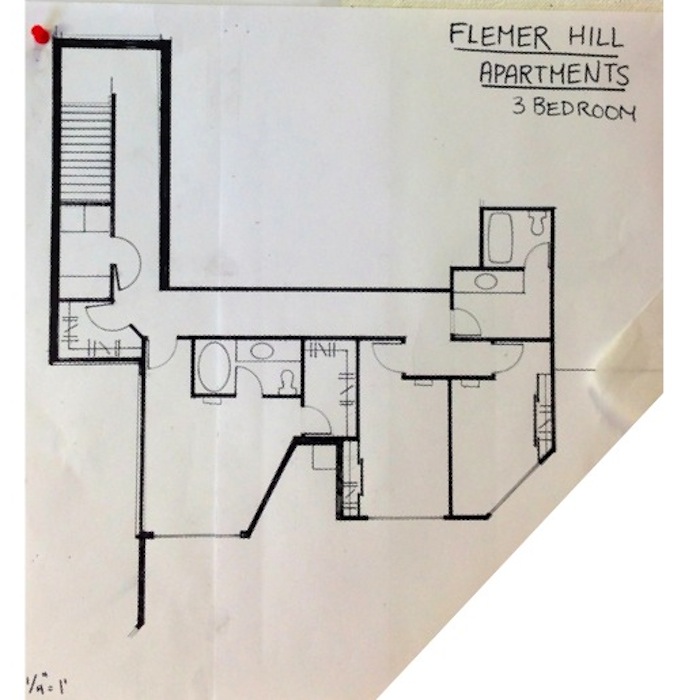 FLEMER HILL
APARTMENTS
3 BEDROOM